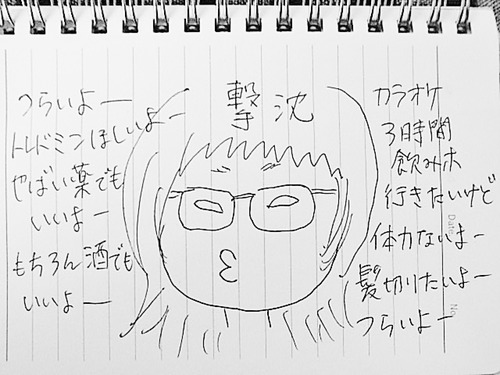 撃沈
つらいよー
トレドミンほしいよー
やばい薬でも
いいよー
もちろん酒でも
いいよー
カラオケ
3時間
飲みホ
行きたいけど
体力ないよー
髪切りたいよー
つらいよー
Date
No.